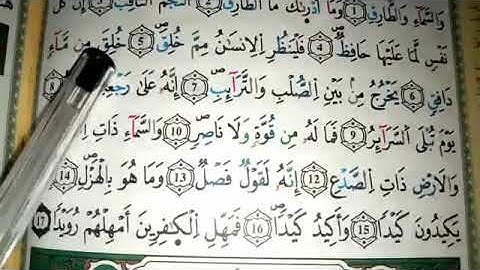 وَالسَّمَآءِ وَالطَّارِقِ ١ وَمَآ أَدْرَىٰكَ مَا الطَّارِقُ ٢ النَّجْمُ الثَّاقِبُ
نَفْسٍ لَّمَّا عَلَيْهَا حَافِظٌ ٤ فَلْيَنظُرِ الْإِنسَٰنُ مِمَّ خُلِقَ ٥ خُلِقَ مِن مَّآءٍ
دَافِقٍ ٦ يَخْرُجُ مِنۢ بَيْنِ الصُّلْبِ وَالتَّرَآئِبِ ٧ إِنَّهُۥ عَلَىٰ رَجْعِهِۦ ٨
يَوْمَ تُبْلَى السَّرَآئِرُ ٩ فَمَا لَهُۥ مِن قُوَّةٍ وَلَا نَاصِرٍ ١٠ وَالسَّمَآءِ ذَاتِ
وَالْأَرْضِ ذَاتِ الصَّدْعِ ١٢ إِنَّهُۥ لَقَوْلٌ فَصْلٌ ١٣ وَمَا هُوَ بِالْهَزْلِ ١٤
يَكِيدُونَ كَيْدًا ١٥ وَأَكِيدُ كَيْدًا ١٦ فَمَهِّلِ الْكَٰفِرِينَ أَمْهِلْهُمْ رُوَيْدًۢا ١٧